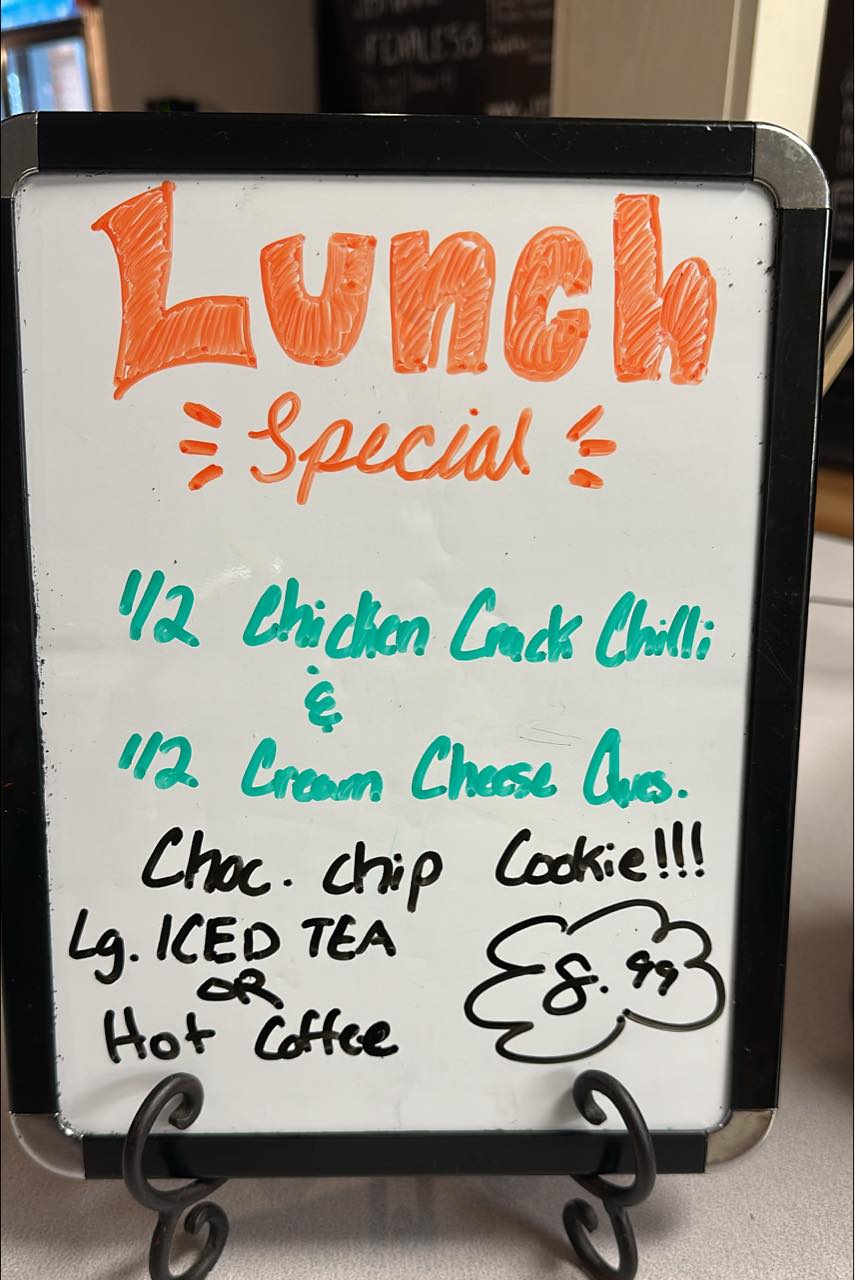 Lunch
Special
1/2 Chicken Crack Chilli
&
1/2 Cream Cheese Ques.
Choc. chip Cookie!!!
Lg. ICED TEA
OR
Hot Coffee
8.99